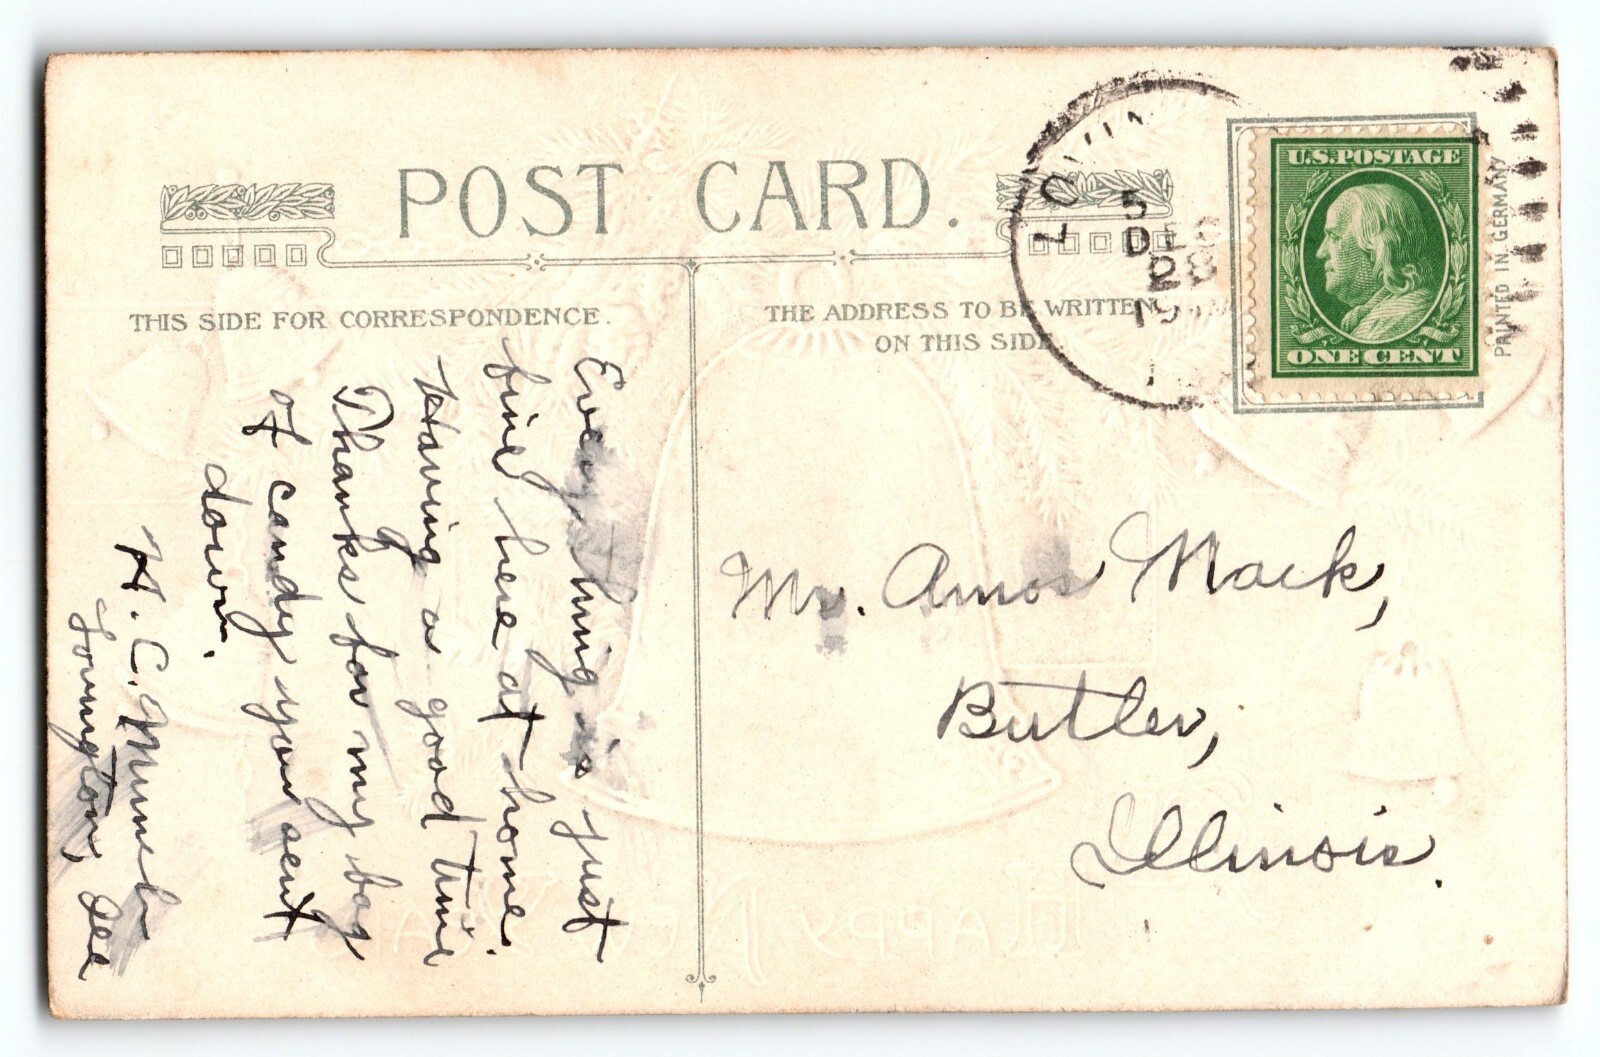 POST CARD.
THIS SIDE FOR CORRESPONDENCE.
THE ADDRESS TO BE WRITTEN
ON THIS SIDE.
U.S.POSTAGE
ONE CENT
PRINTED IN GERMANY
LOVIN
5
DEC
28
19
Every thing is just
fine here at home.
Having a good time
Thanks for my bag
of candy you sent
down.
H. C.
Lovington, Ill
Mr. Amos Mack,
Butler,
Illinois.
HAPPY NEW YEAR